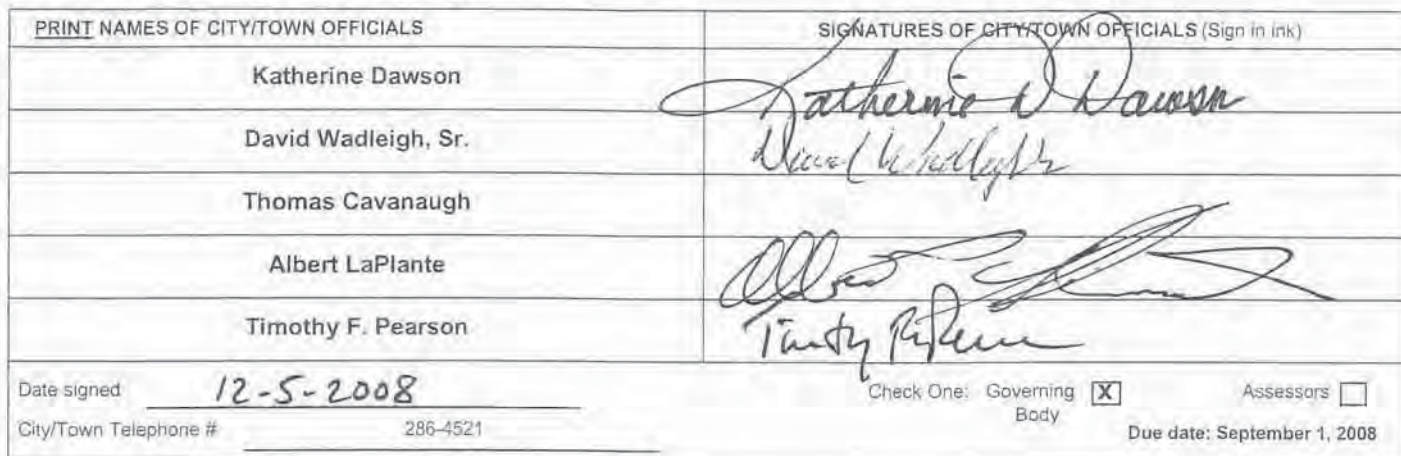 PRINT NAMES OF CITY/TOWN OFFICIALS SIGNATURES OF CITY/TOWN OFFICIALS (Sign in ink)
Katherine Dawson Katherine D Dawson
David Wadleigh, Sr. David Wadleigh Sr
Thomas Cavanaugh
Albert LaPlante Albert
Timothy F. Pearson Timothy
Date signed 12-5-2008 Check One: Governing Body X Assessors
City/Town Telephone # 286-4521 Due date: September 1, 2008